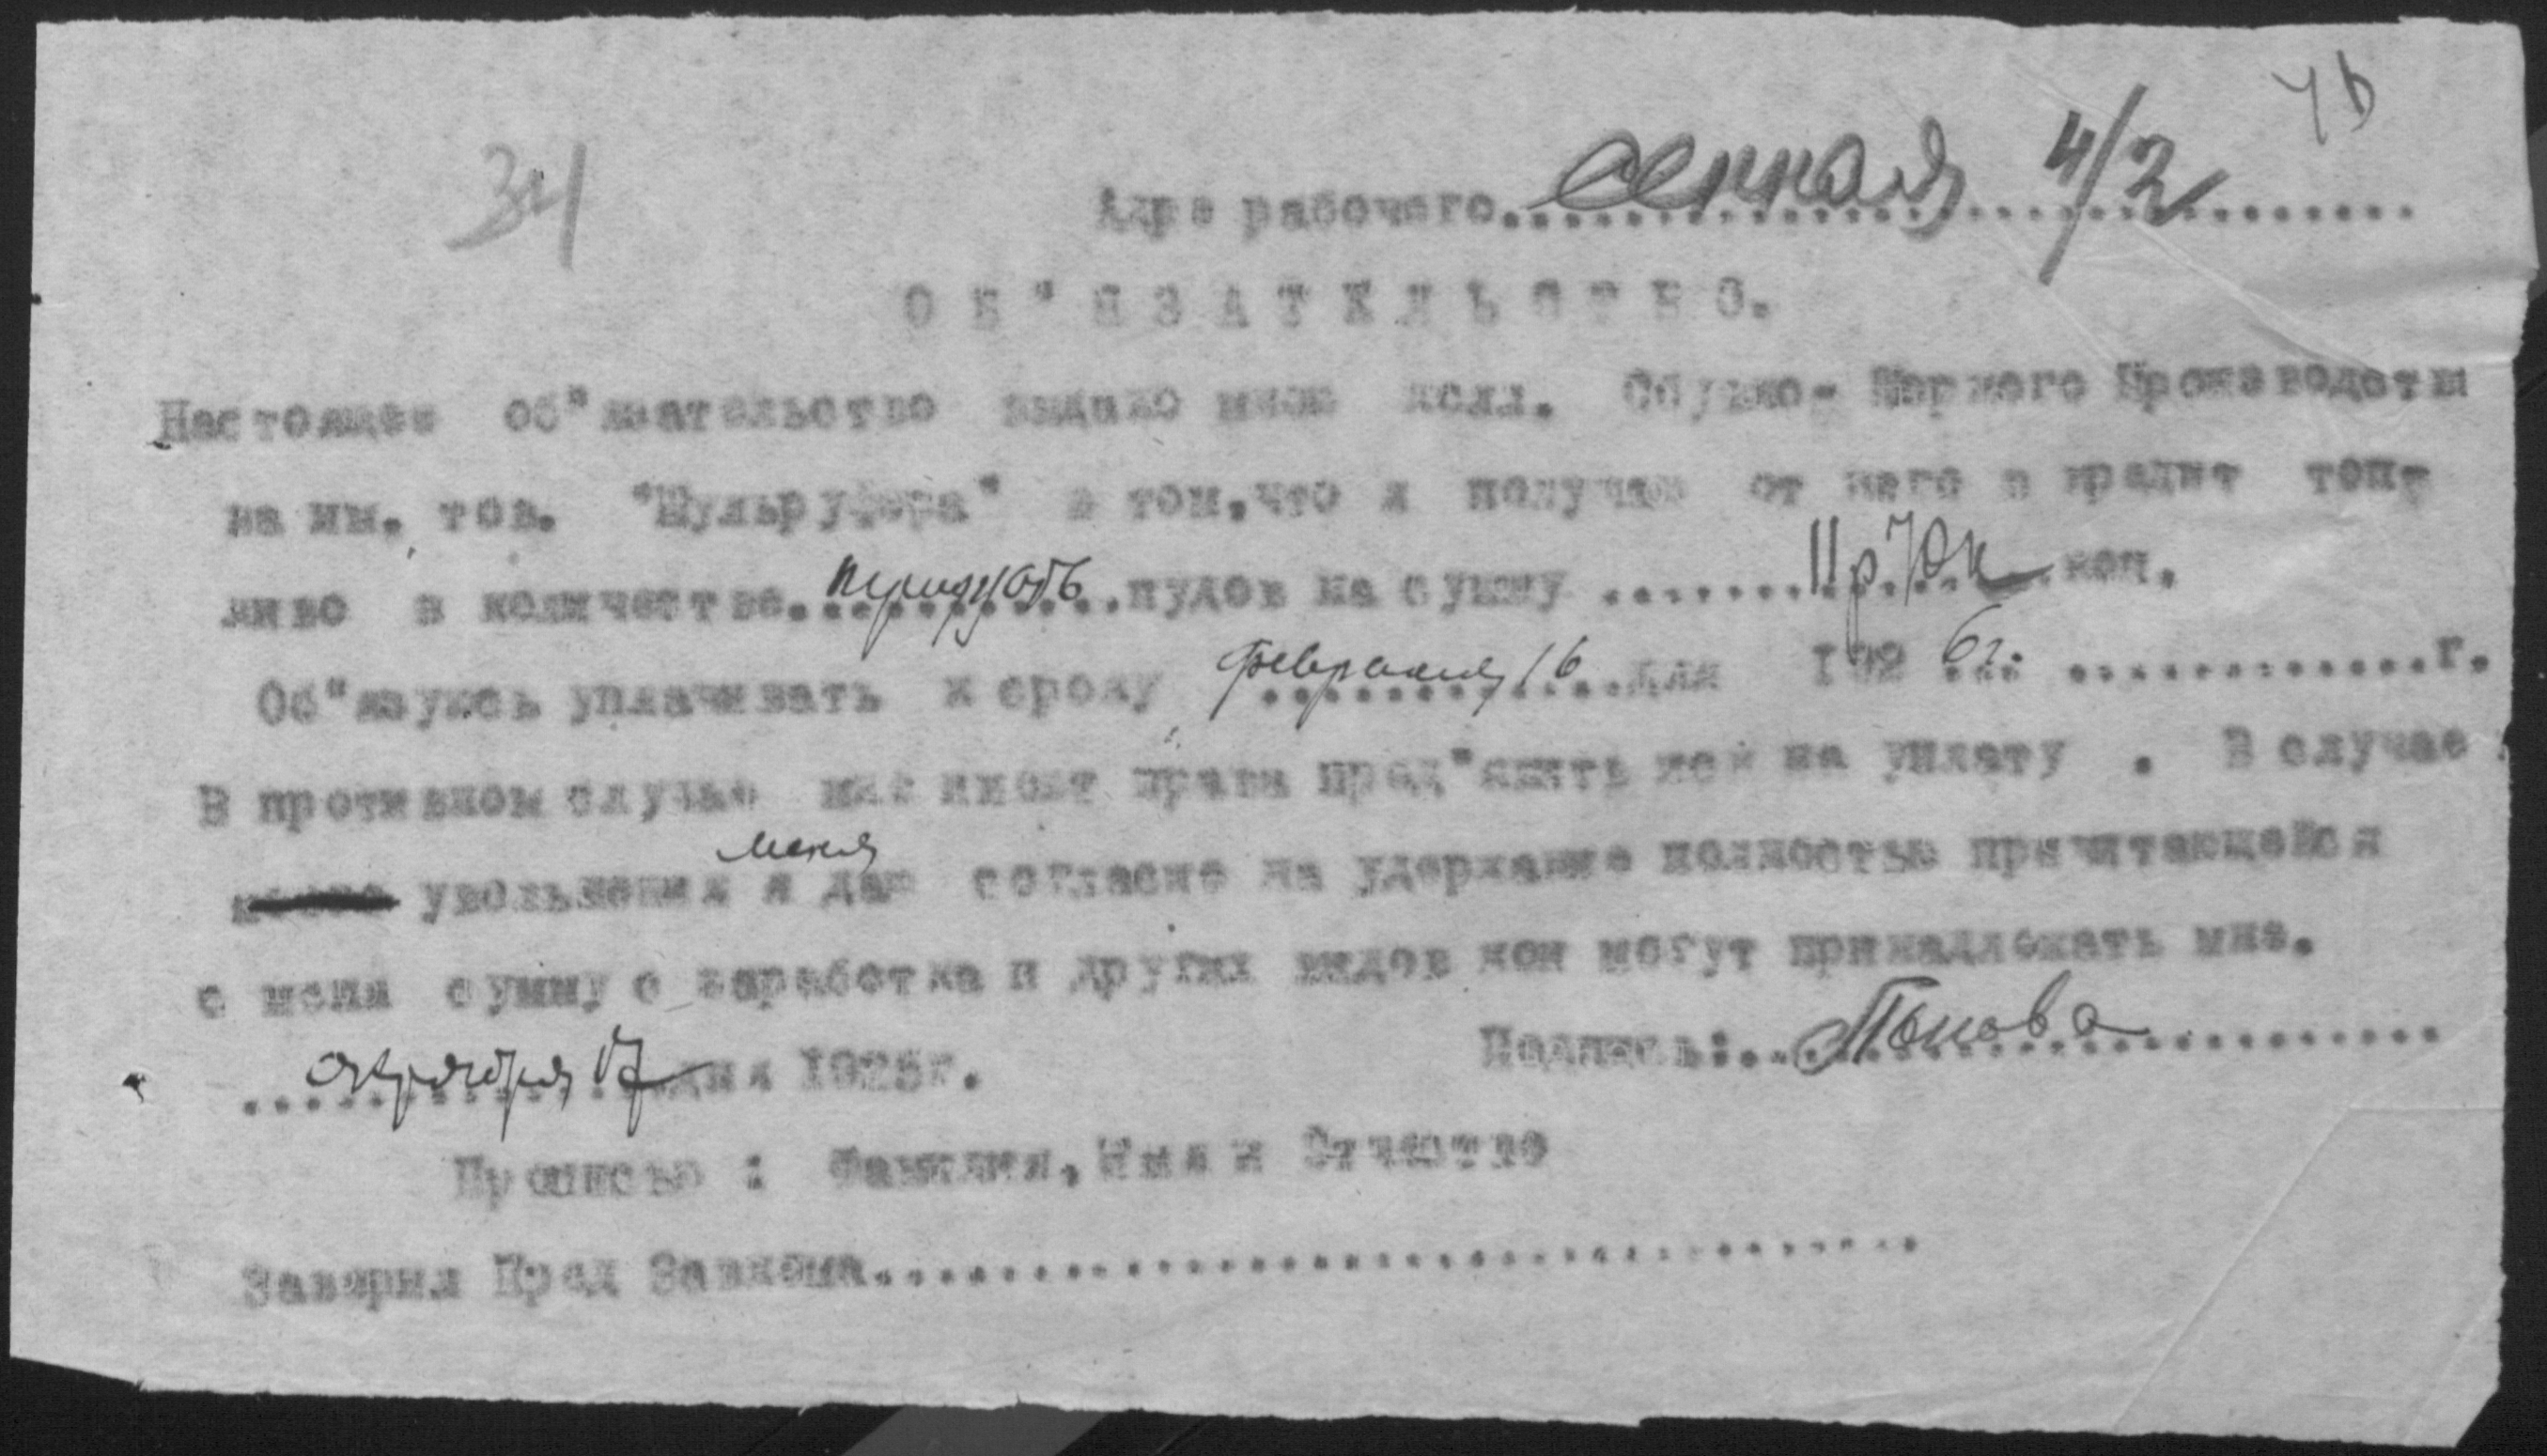 34
Адре рабочего. Сенная 4/2
О Б " Я З А Т Е Л Ь С Т В О.
Настоящее об"язательство выдано мною колл. Производства
на им. тов. "Шульруфера" в том, что я получаю от него в кредит топ
ливо в количестве. пудов на сумму 11р 70к коп.
Об"язуюсь уплачивать к сроку февраля 16 дня 192 6г. г.
В противном случае имеет права пред"явить на уплату . В случае
меня
увольнения я даю согласие на удержание полностью причитающейся
с меня сумму с заработка и других видов кои могут принадлежать мне.
Подпись:
октября 17 дня 1925г.
Прописью : Фамилия, Имя и Отчество
Заверил Пред Завкома